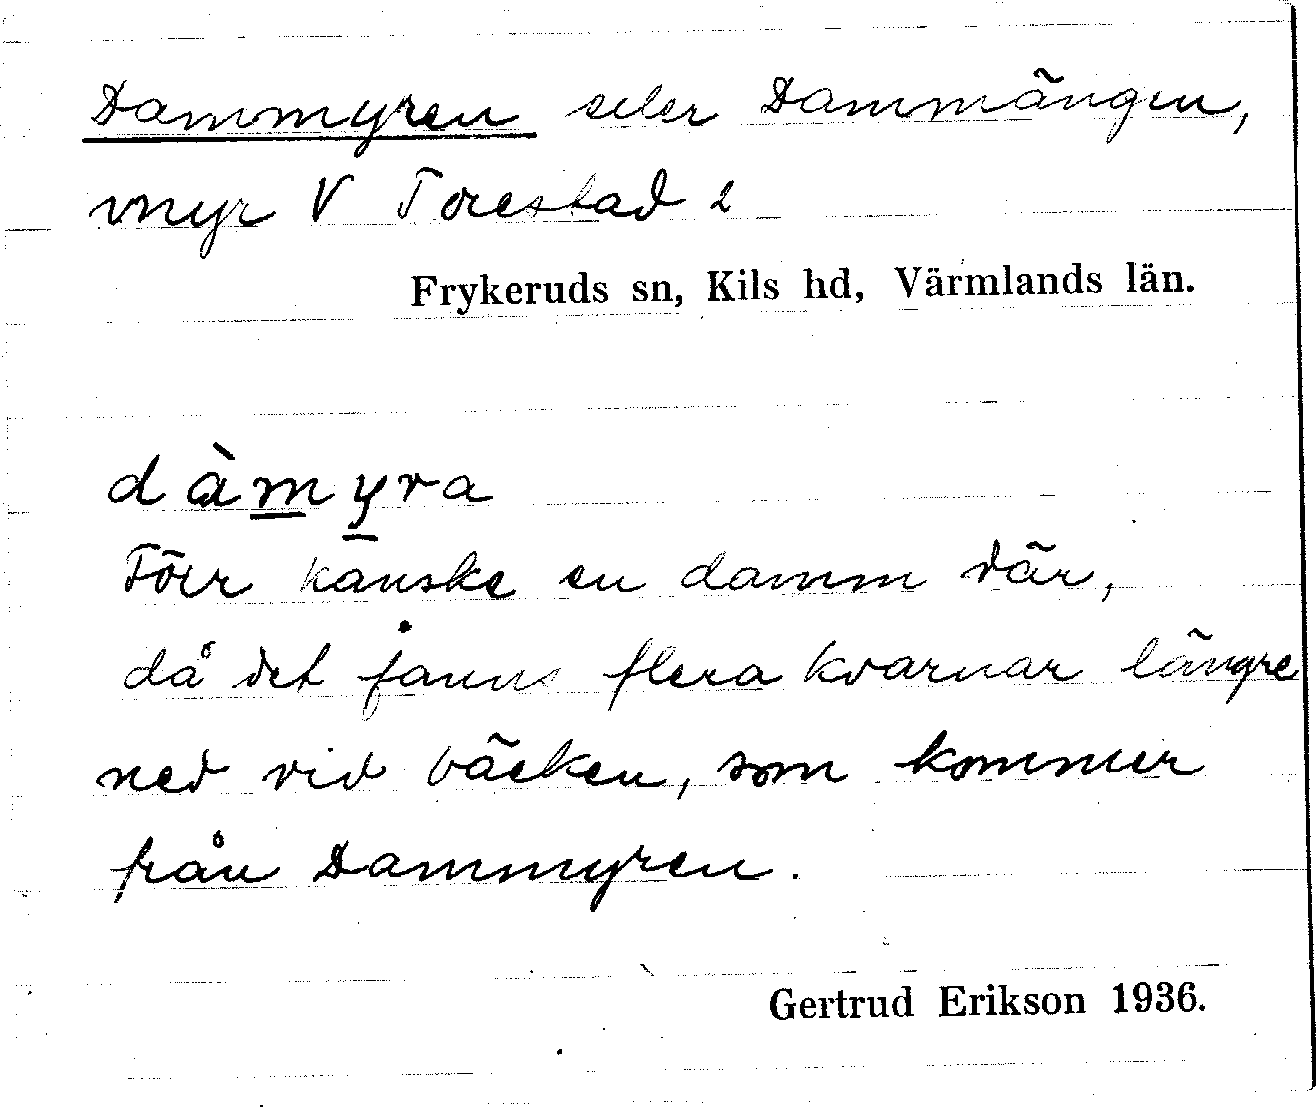 Dammyren eller Dammängen,
myr V Torestad 2
Frykeruds sn, Kils hd, Värmlands län.
dàmyra
Förr kanske en damm där,
då det fanns flera kvarnar längre
ned vid bäcken, som kommer
från Dammyren.
Gertrud Erikson 1936.